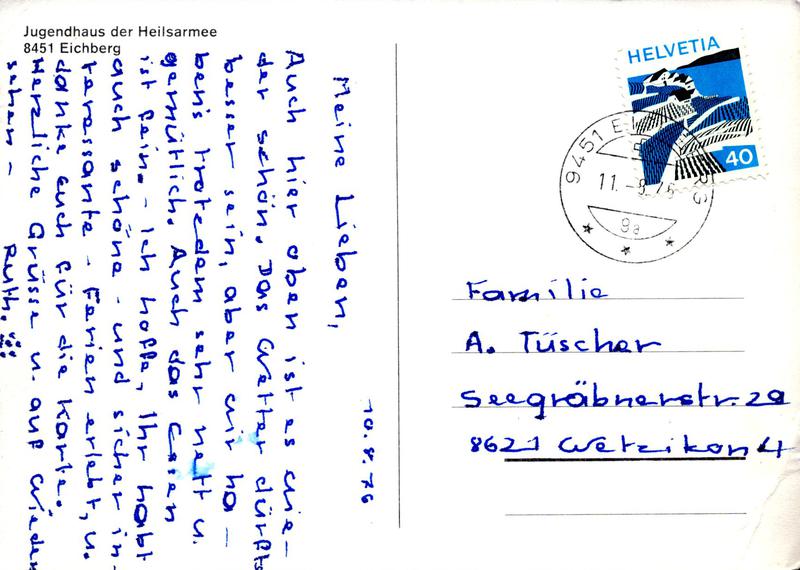 Jugendhaus der Heilsarmee
8451 Eichberg
10.8.76
Meine Lieben,
Auch hier oben ist es wie-
der schön. Das Wetter dürfte
besser sein, aber wir ha-
bens trotzdem sehr nett u.
gemütlich. Auch das Essen
ist fein. - Ich hoffe, Ihr habt
auch schöne - und sicher in-
teressante - Ferien erlebt, u.
danke auch für die Karte.
Herzliche Grüsse u. auf Wieder
sehen -
Ruth.
HELVETIA
40
9451 EI
RG
11.-8.76
9a
Familie
A. Tüscher
Seegräbnerstr. 29
8621 Wetzikon 4